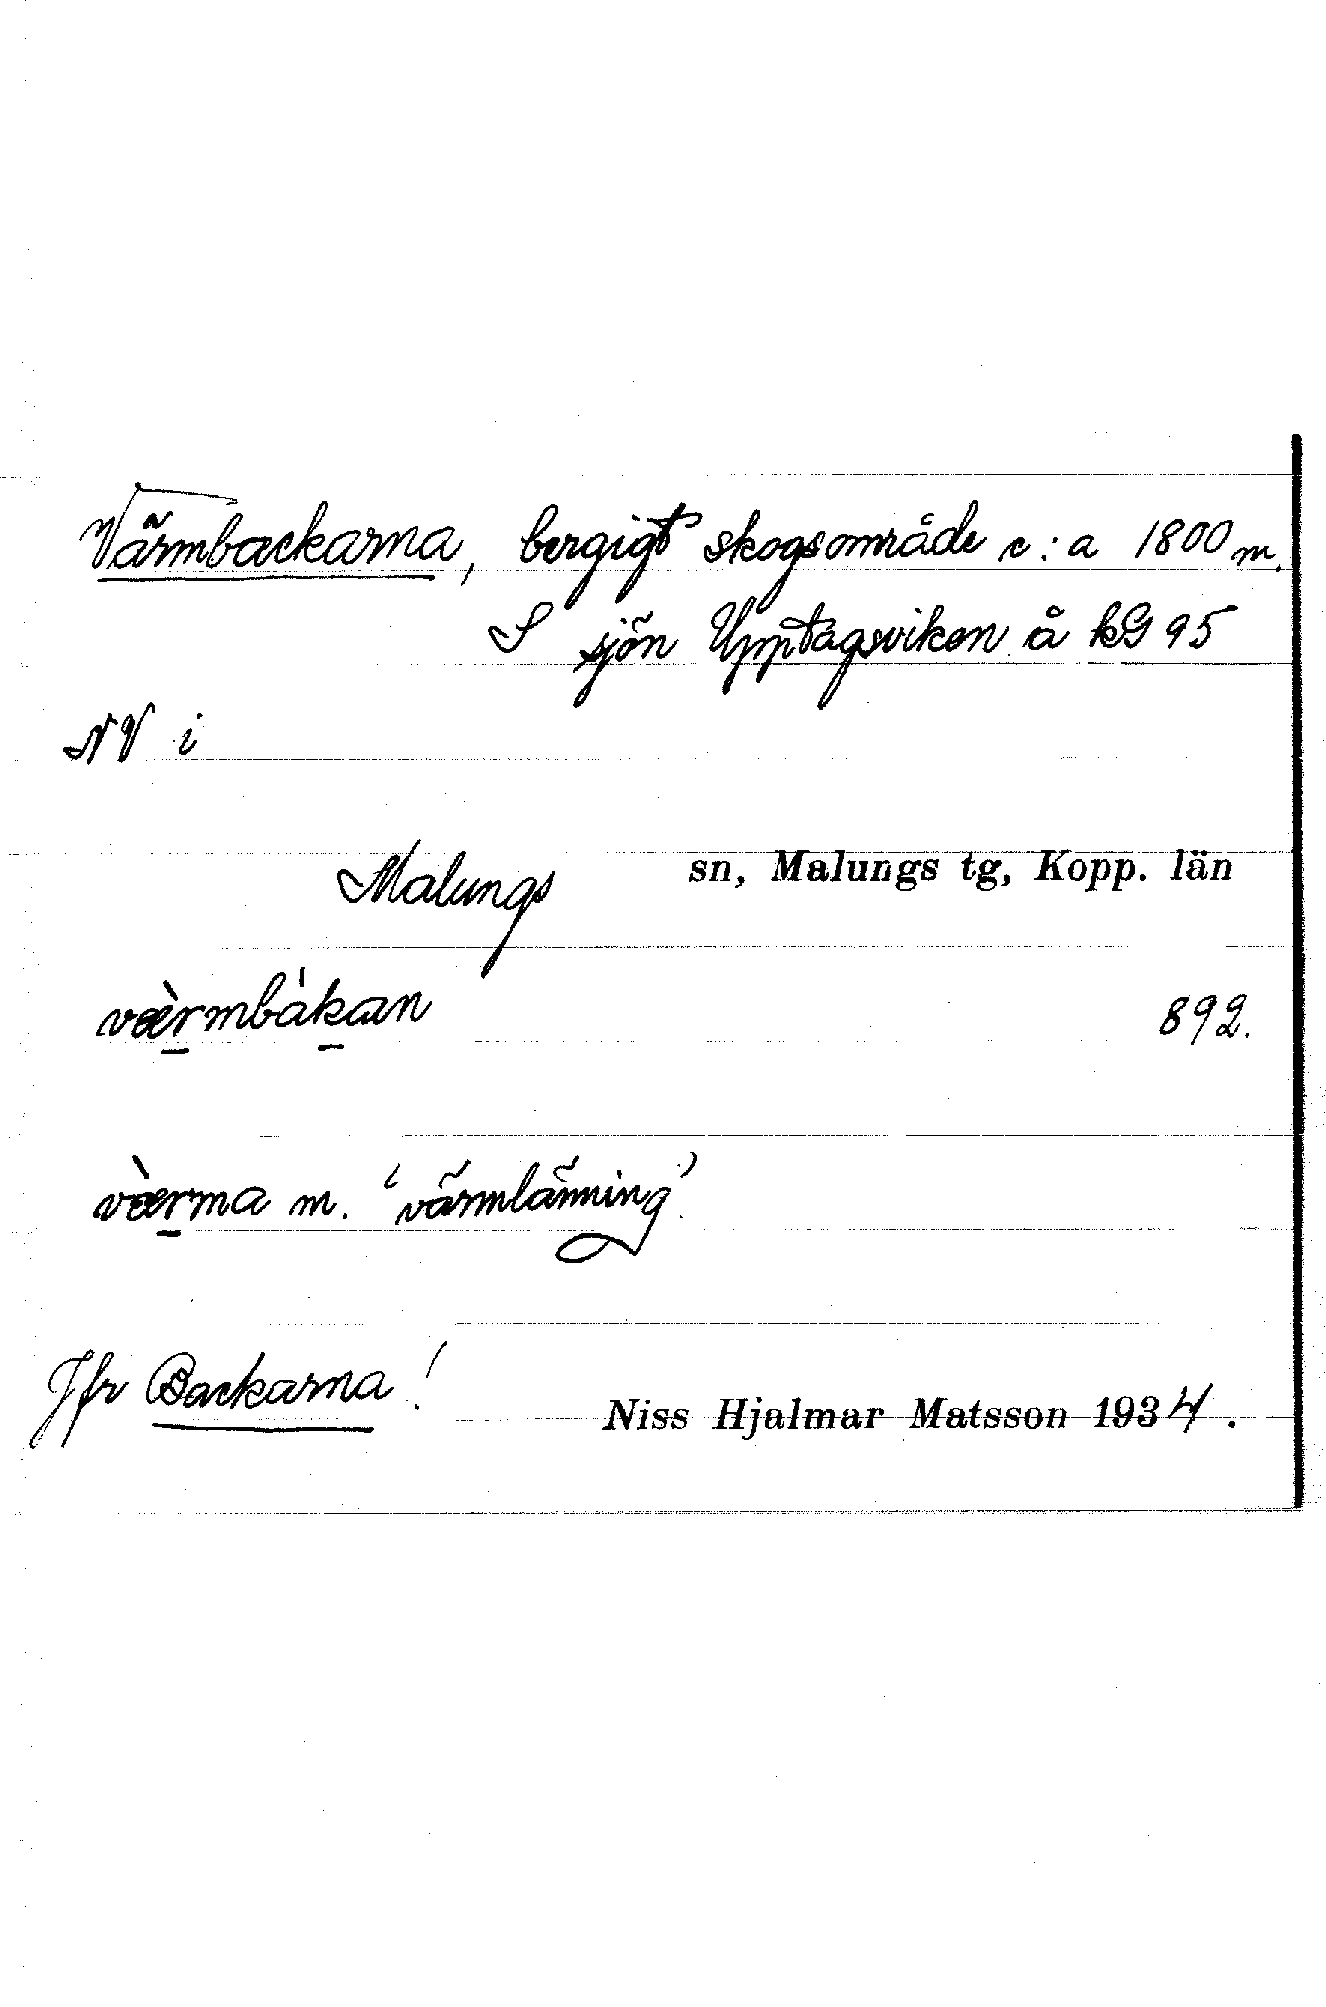 Värmbackarna, bergigt skogsområde c:a 1800 m.
S sjön Upptagsviken å kG 95
NV i
Malungs sn, Malungs tg, Kopp. län
væ̀rmbákan 892.
væ̀rma m. 'värmlänning'.
Jfr Backarna!
Niss Hjalmar Matsson 1934.